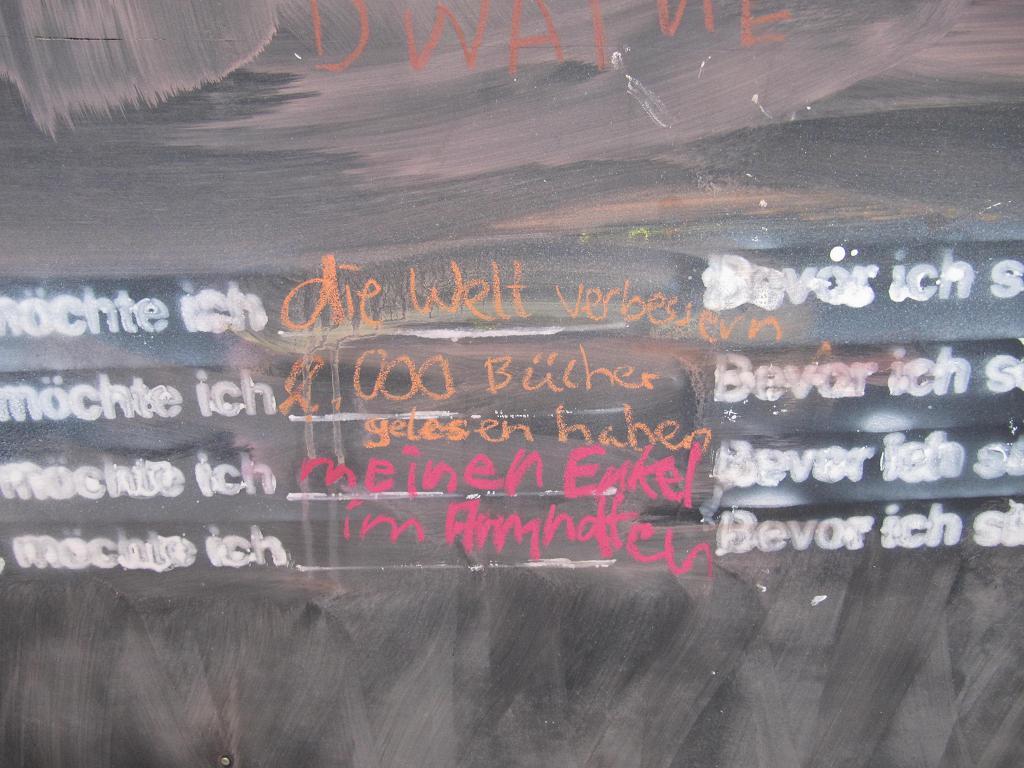 DWAYNE
möchte ich die Welt verbessern Bevor ich s
möchte ich 1.000 Bücher Bevor ich s
gelesen haben
möchte ich meinen Enkel Bevor ich st
im Arm halten
möchte ich Bevor ich st